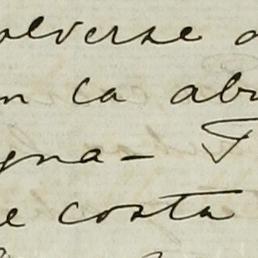 olverse a
n ca abu
gna - T
e costa